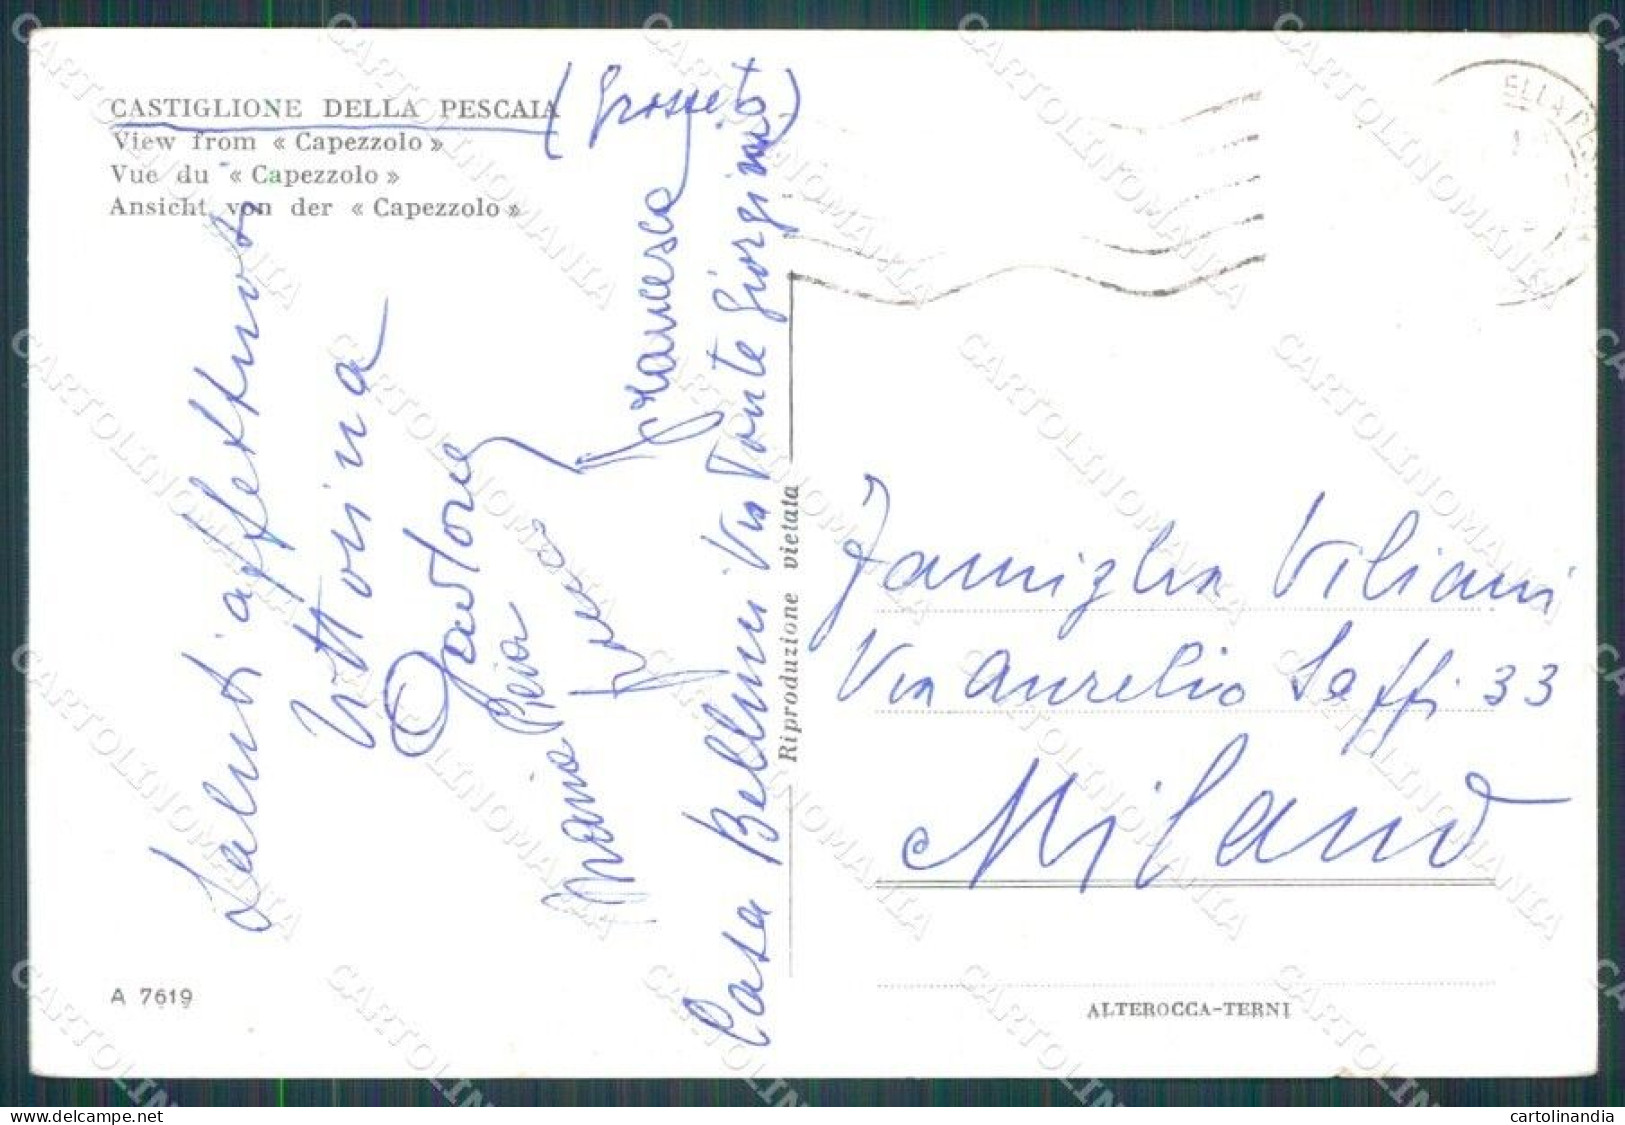 CASTIGLIONE DELLA PESCAIA (Grosseto)
View from « Capezzolo »
Vue du « Capezzolo »
Ansicht von der « Capezzolo »
Saluti affettuosi
Vittorina
Maria Pia
Francesca
Casa Bellini Via Ponte Giorgini
Riproduzione vietata
ELLA PES
Famiglia Viliani
Via Aurelio Saffi 33
Milano
A 7619
ALTEROCCA-TERNI
CARTOLINOMANIA
delcampe.net
cartolinandia